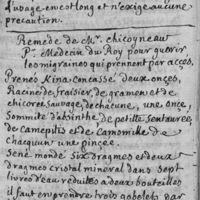 d'usage en cot long et n'exige aucune
precaution.
Remede de Mr. chicoyneau
Pr. Medecin du Roy pour guerir
les migraines qui prennent par accès,
Prenés Kina concassé deux onces,
Racine de fraisier, de gramen et de
chicorée sauvage, de chacune, une once,
Sommité d'absinthe, de petite sentaurée,
de camepitis et de Camomille de
Chacquun une pincee.
Sené mondé six dragmes et deux
dragmes cristal mineral dans sept
livres d'eau réduites a deux bouteilles
il faut en prendre trois gobelets par